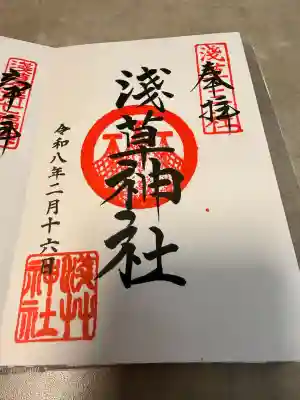 奉拝
浅草神社
浅草神社
令和八年二月十六日
浅草神社